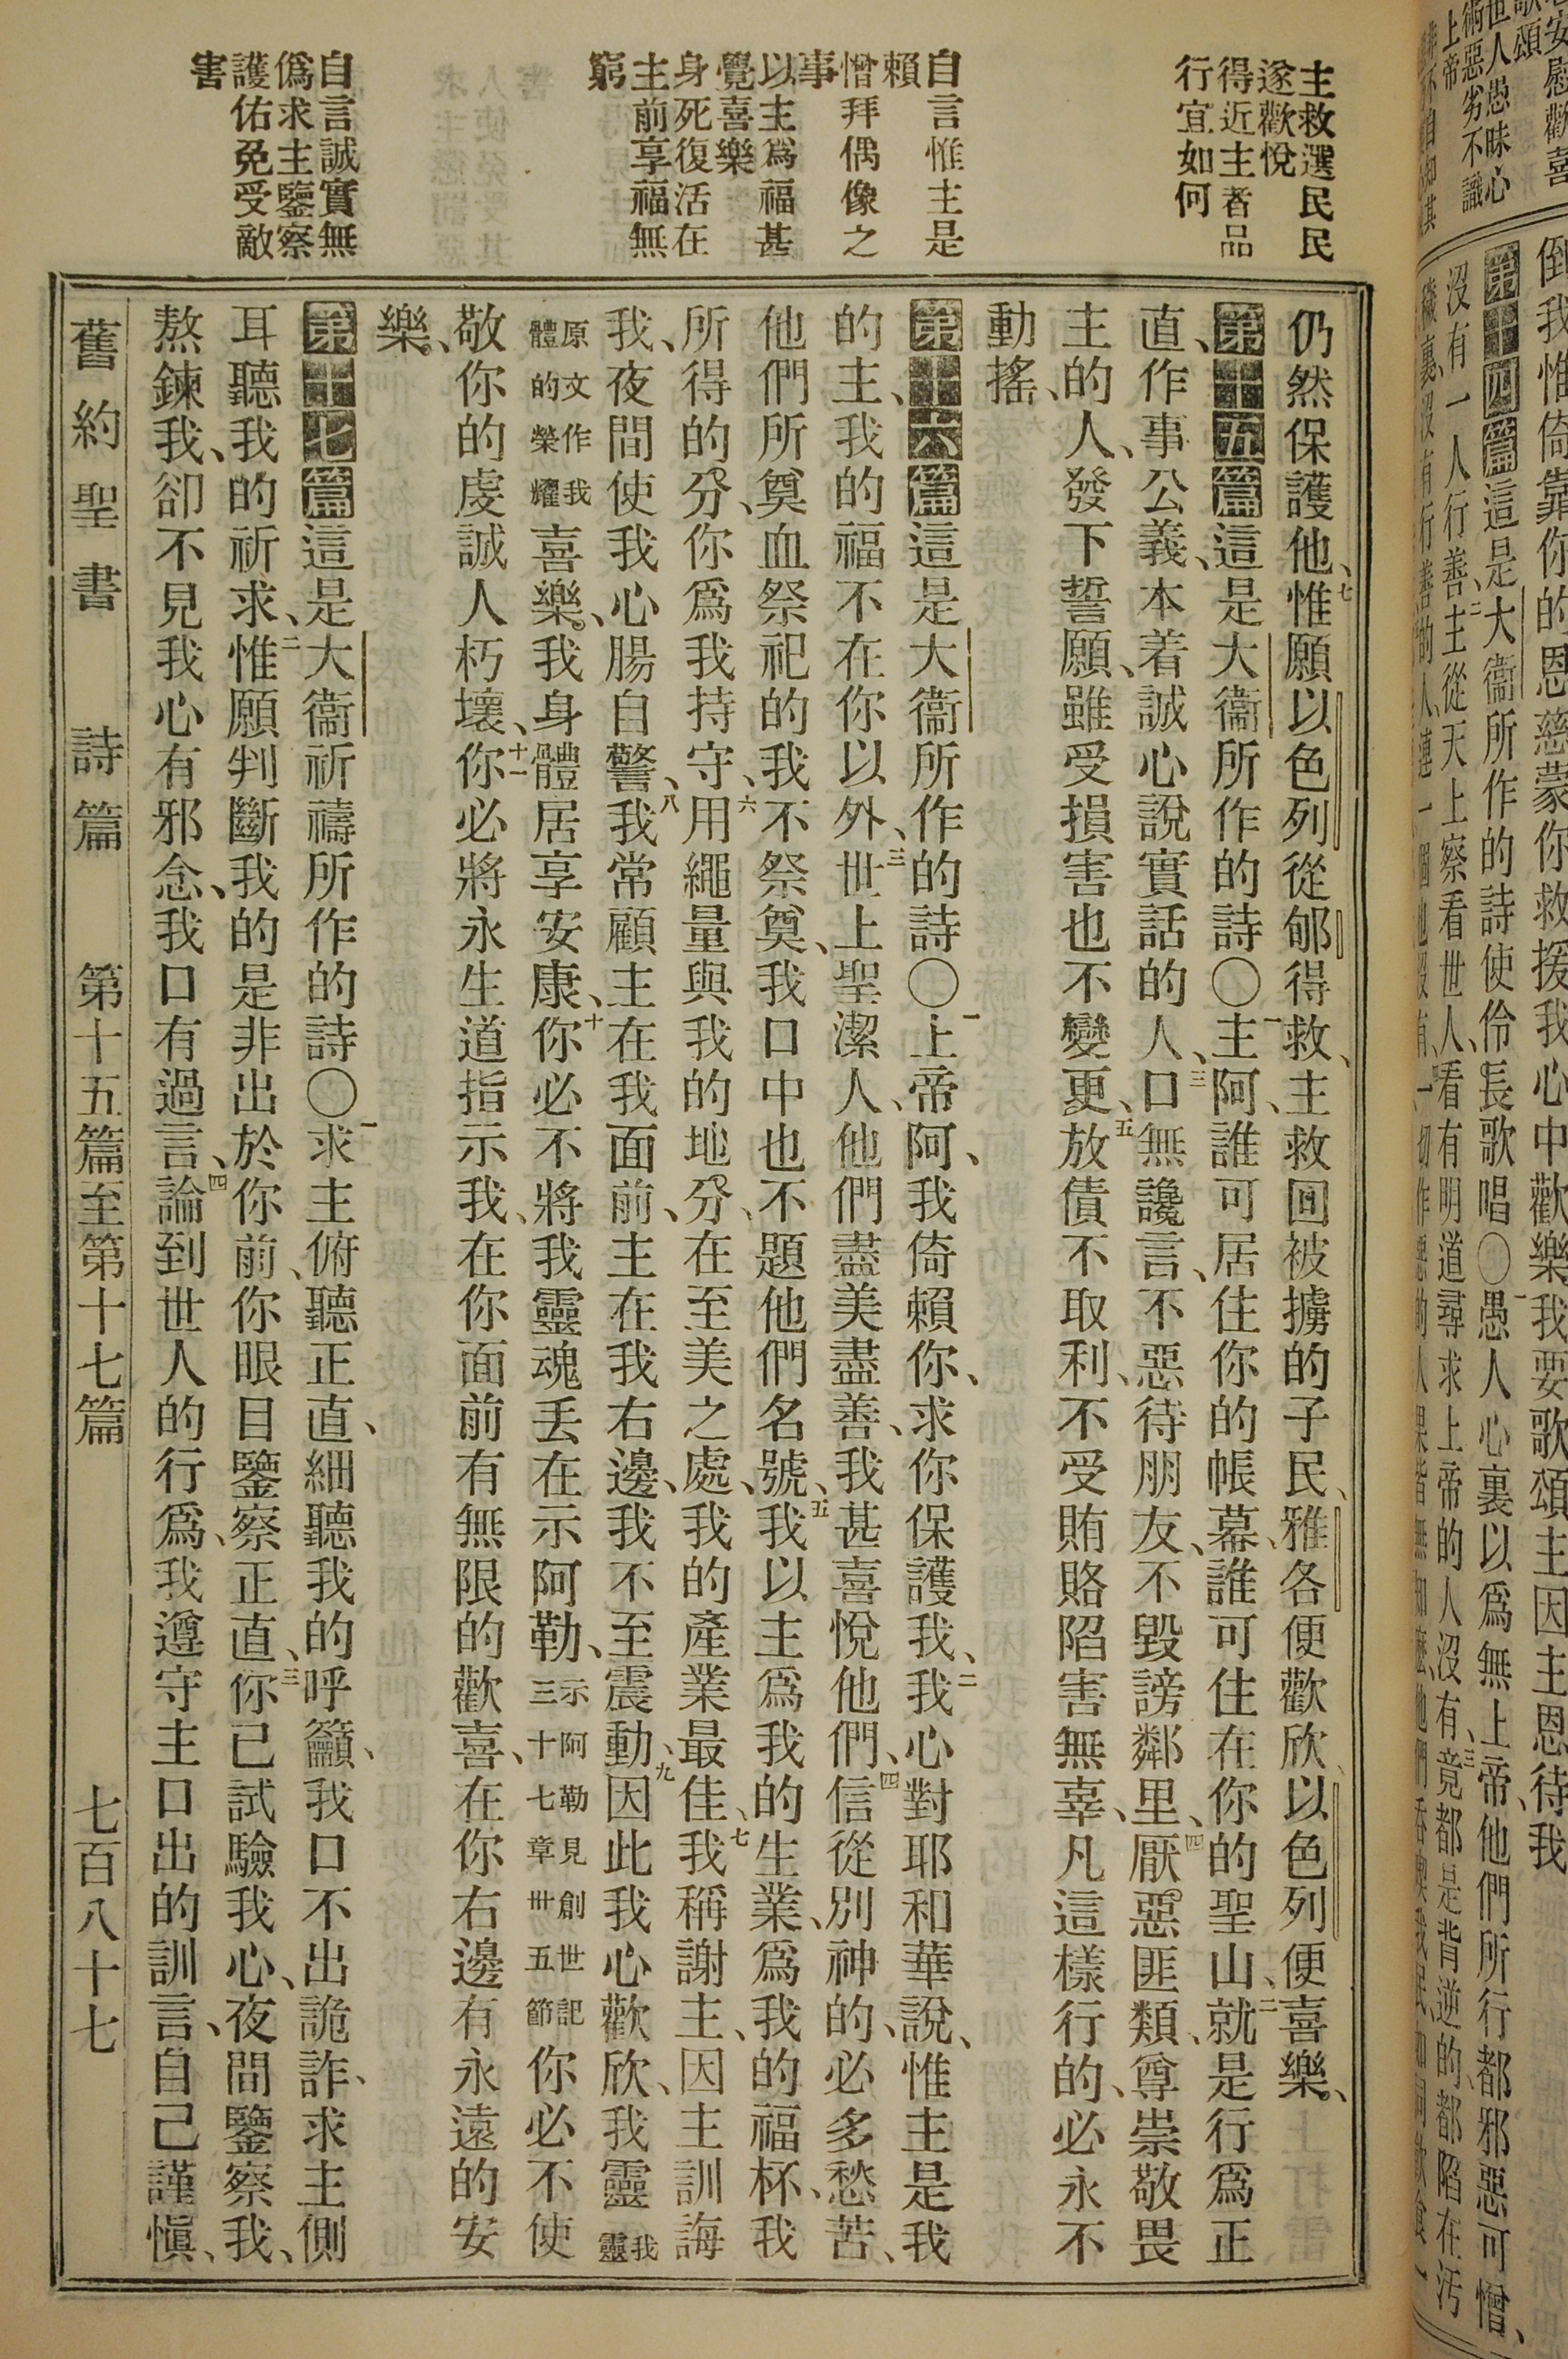 主救選民民
遂歡悅
得近主者品
行宜如何
自言惟主是
賴
憎拜偶像之
事
以主爲福甚
覺喜樂
身死復活在
主前享福無
窮
自言誠實無
僞求主鑒察
護佑免受敵
害
仍然保護他、七惟願以色列從郇得救、主救回被擄的子民、雅各便歡欣、以色列便喜樂。
第十五篇這是大衞所作的詩〇一主阿、誰可居住你的帳幕、誰可住在你的聖山、二就是行爲正
直、作事公義、本着誠心說實話的人、三口無讒言、不惡待朋友、不毀謗鄰里、四厭惡匪類、尊崇敬畏
主的人、發下誓願、雖受損害也不變更、五放債不取利、不受賄賂陷害無辜、凡這樣行的、必永不
動搖、
第十六篇這是大衞所作的詩〇一上帝阿、我倚賴你、求你保護我、二我心對耶和華說、惟主是我
的主、我的福不在你以外、三世上聖潔人、他們盡美盡善、我甚喜悅他們、四信從別神的、必多愁苦、
他們所奠血祭祀的我不祭奠、我口中也不題他們名號、五我以主爲我的生業、爲我的福杯、我
所得的分、你爲我持守、六用繩量與我的地分、在至美之處、我的產業最佳、七我稱謝主、因主訓誨
我、夜間使我心腸自警、八我常顧主在我面前、主在我右邊、我不至震動、九因此我心歡欣、我靈我靈
原文作我體的榮耀喜樂。我身體居享安康、十你必不將我靈魂丢在示阿勒、示阿勒見創世記三十七章卅五節你必不使
敬你的虔誠人朽壞、十一你必將永生道指示我、在你面前有無限的歡喜、在你右邊有永遠的安
樂。
第十七篇這是大衞祈禱所作的詩〇一求主俯聽正直、細聽我的呼籲、我口不出詭詐、求主側
耳聽我的祈求、二惟願判斷我的是非出於你前、你眼目鑒察正直、三你已試驗我心、夜間鑒察我、
熬鍊我、卻不見我心有邪念、我口有過言、四論到世人的行爲、我遵守主口出的訓言、自己謹愼、
舊約聖書　詩篇　第十五篇至第十七篇　七百八十七
倒我惟倚靠你的恩慈蒙你救援我心中歡樂我要歌頌主因主恩待我
第十四篇這是大衞所作的詩使伶長歌唱〇一愚人心裏以爲無上帝、他們所行都邪惡可憎、
沒有一人行善、二主從天上察看世人、看有明道尋求上帝的人沒有、三竟都是背逆的、都陷在污